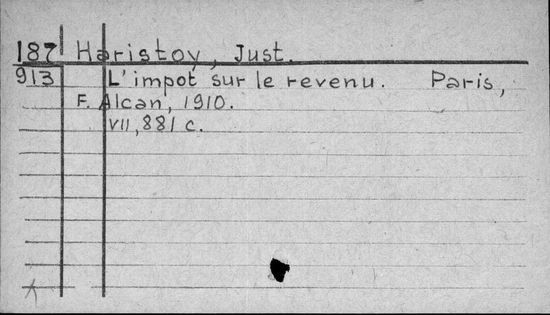 187 Haristoy, Just.
913 L'impot sur le revenu. Paris,
F. Alcan, 1910.
VII, 881 c.